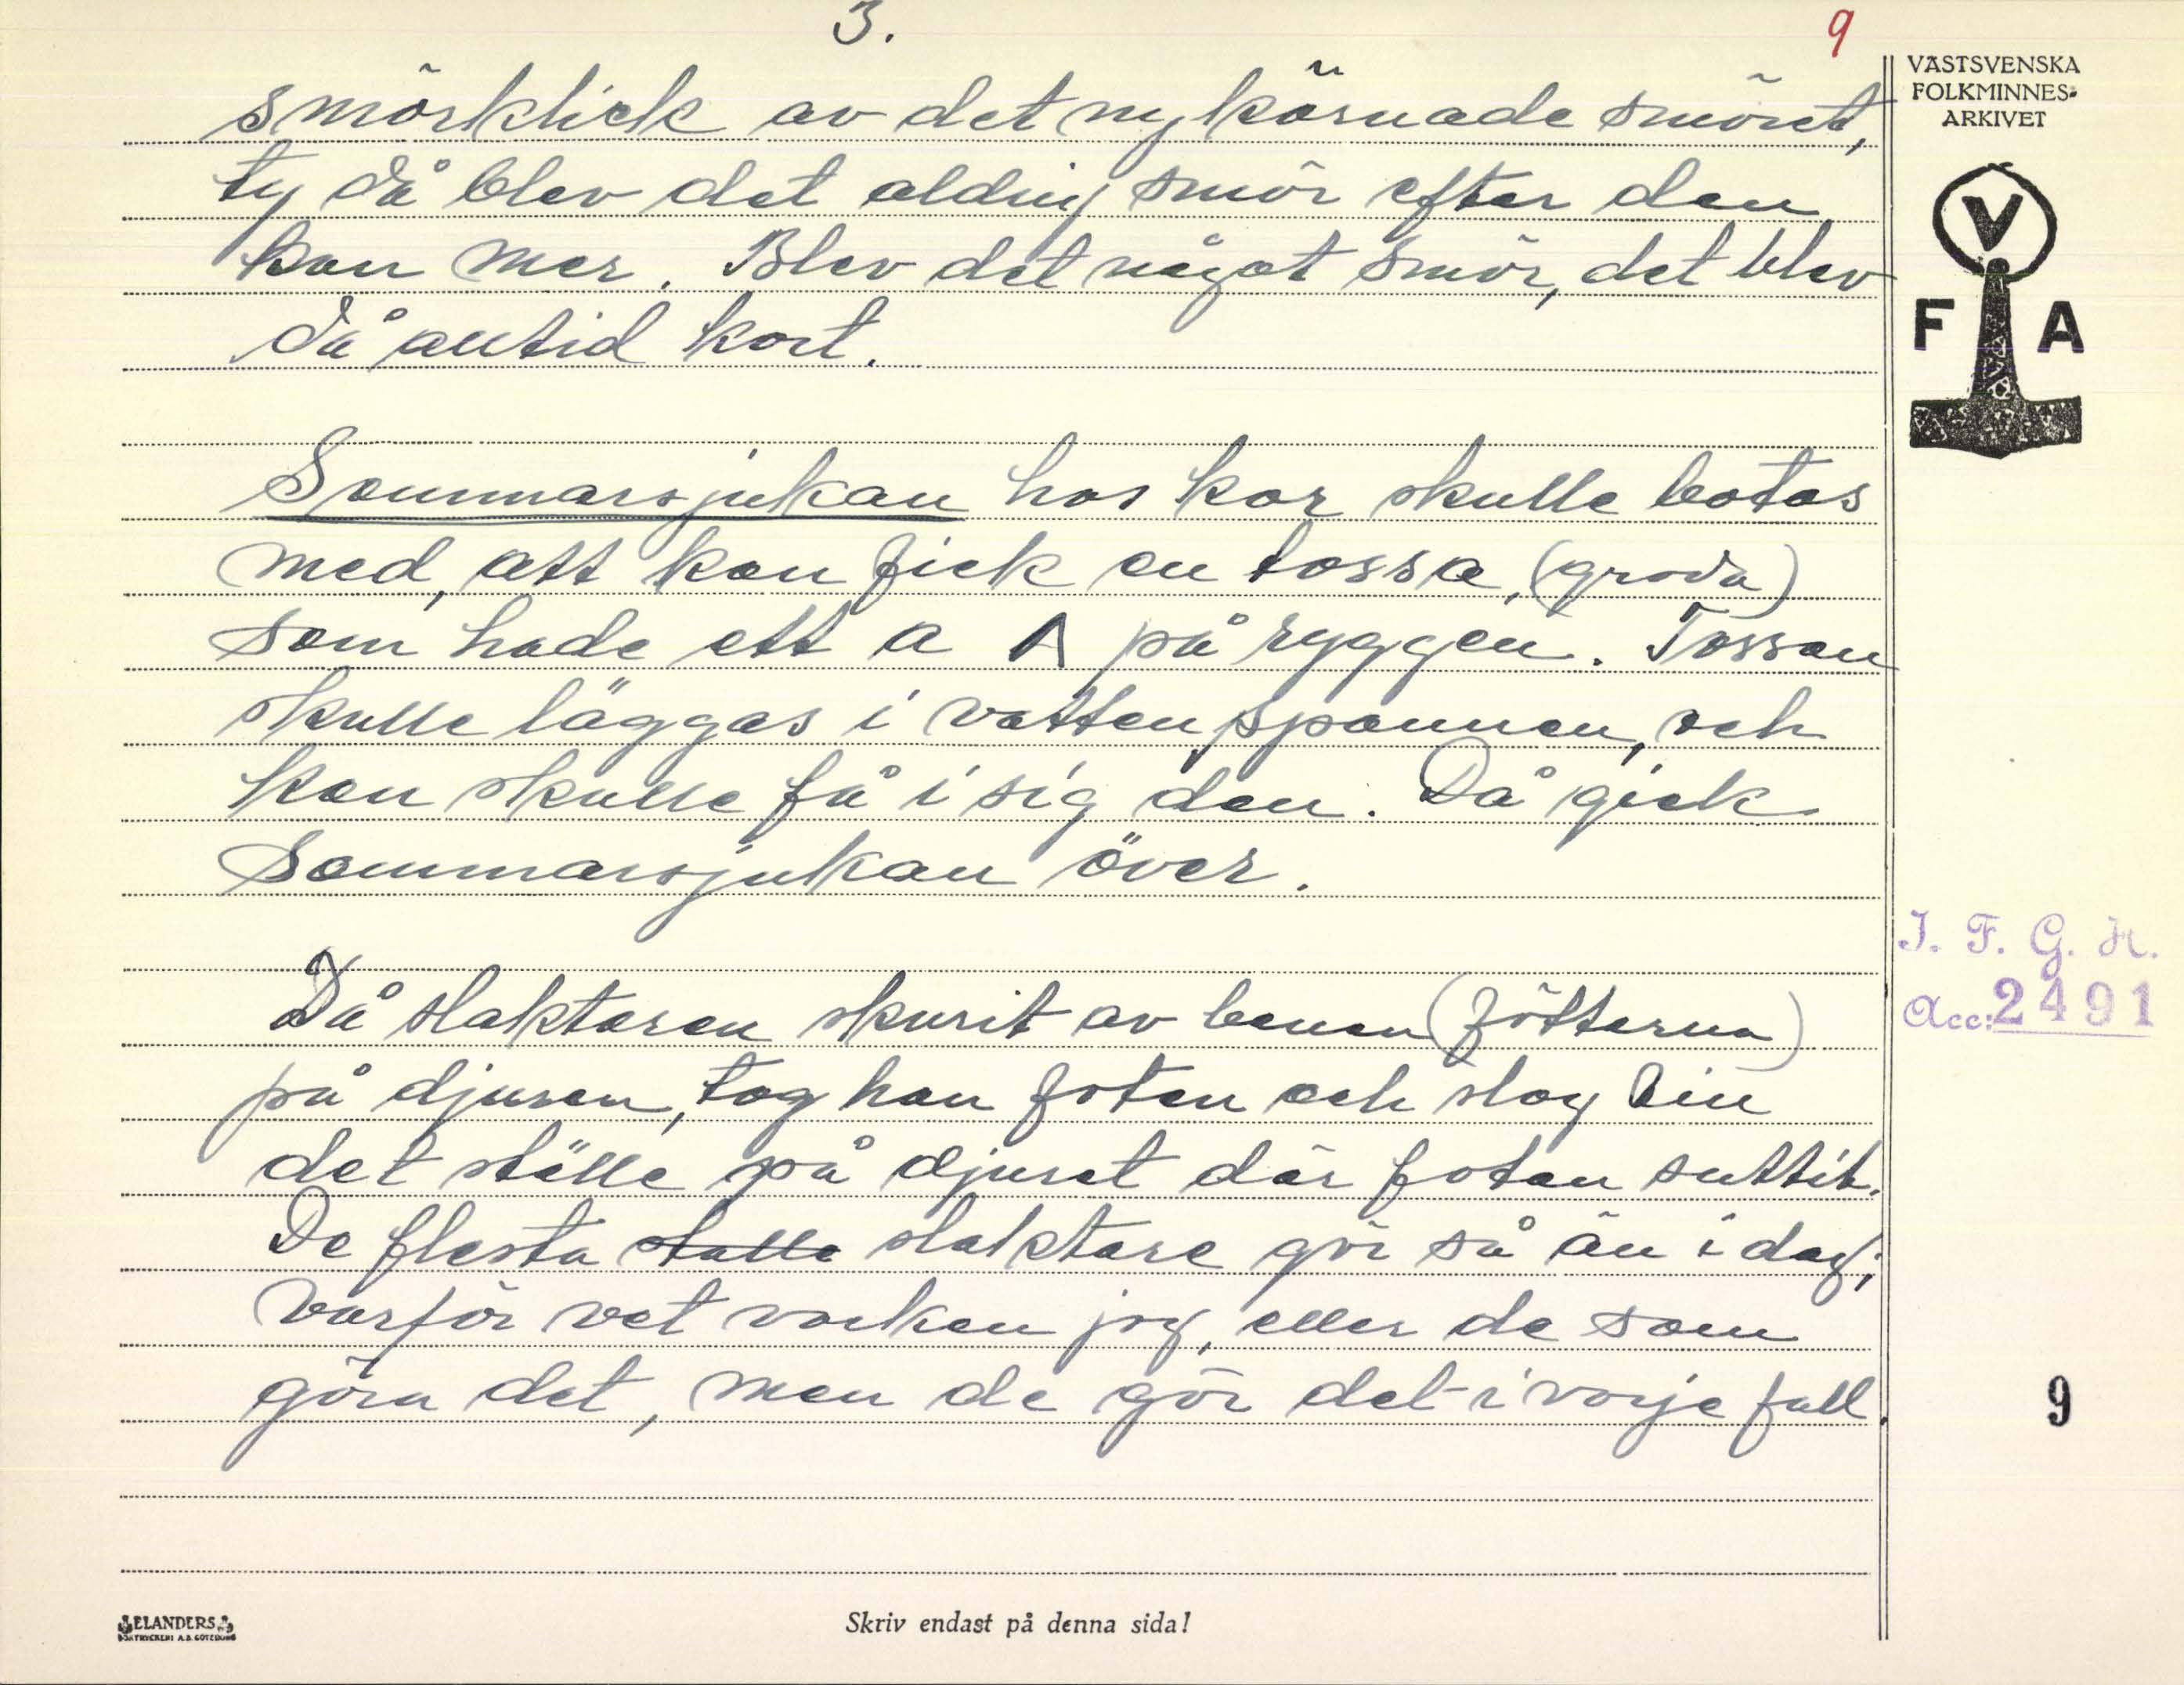 3.
9
VÄSTSVENSKA
FOLKMINNES-
ARKIVET
V
F A
smörklick av det nykärnade smöret,
ty då blev det aldrig smör efter den
kon mer. Blev det något smör, det blev
då alltid kort.
Sommarsjukan hos kor skulle botas
med, att kon fick en tossa, (groda)
som hade ett a A på ryggen. Tossan
skulle läggas i vattenspannen, och
kon skulle få i sig den. Då gick
Sommarsjukan över.
I. F. G. H.
Acc: 2491
Då slaktaren skurit av benen (fötterna)
på djuren, tog han foten och slog i
det ställe på djuret där foten suttit.
De flesta slaktare gör så än i dag;
varför vet varken jag, eller de som
göra det, men de gör det i varje fall.
9
ELANDERS
BOKTRYCKERI A.B. GÖTEBORG
Skriv endast på denna sida!